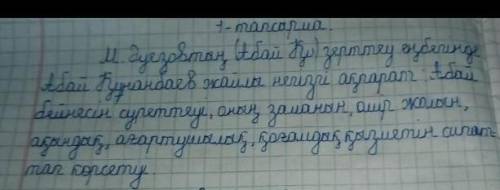 1-тапсарма.
М. Әуезовтың (Абай Құ) зерттеу еңбегінде
Абай Құнанбаев жайлы негізгі ақпарат Абай
бейнесін суреттеу, оның заманын, өмір жолын,
ақындық, ағартушылық, қоғамдық қызметін сипат-
тап көрсету.